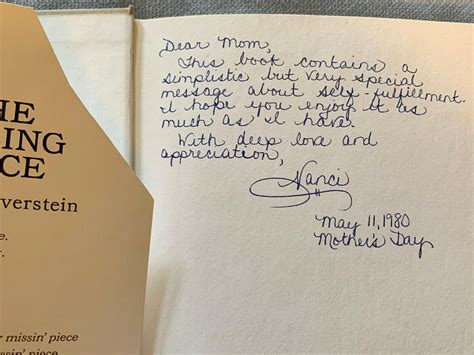 HE
ING
CE
verstein
e.
r.
r missin' piece
ssin' piece
Dear Mom,
This book contains a
simplistic but very special
message about self-fulfillment.
I hope you enjoy it as
much as I have.
With deep love and
appreciation,
Nanci
May 11, 1980
Mother's Day